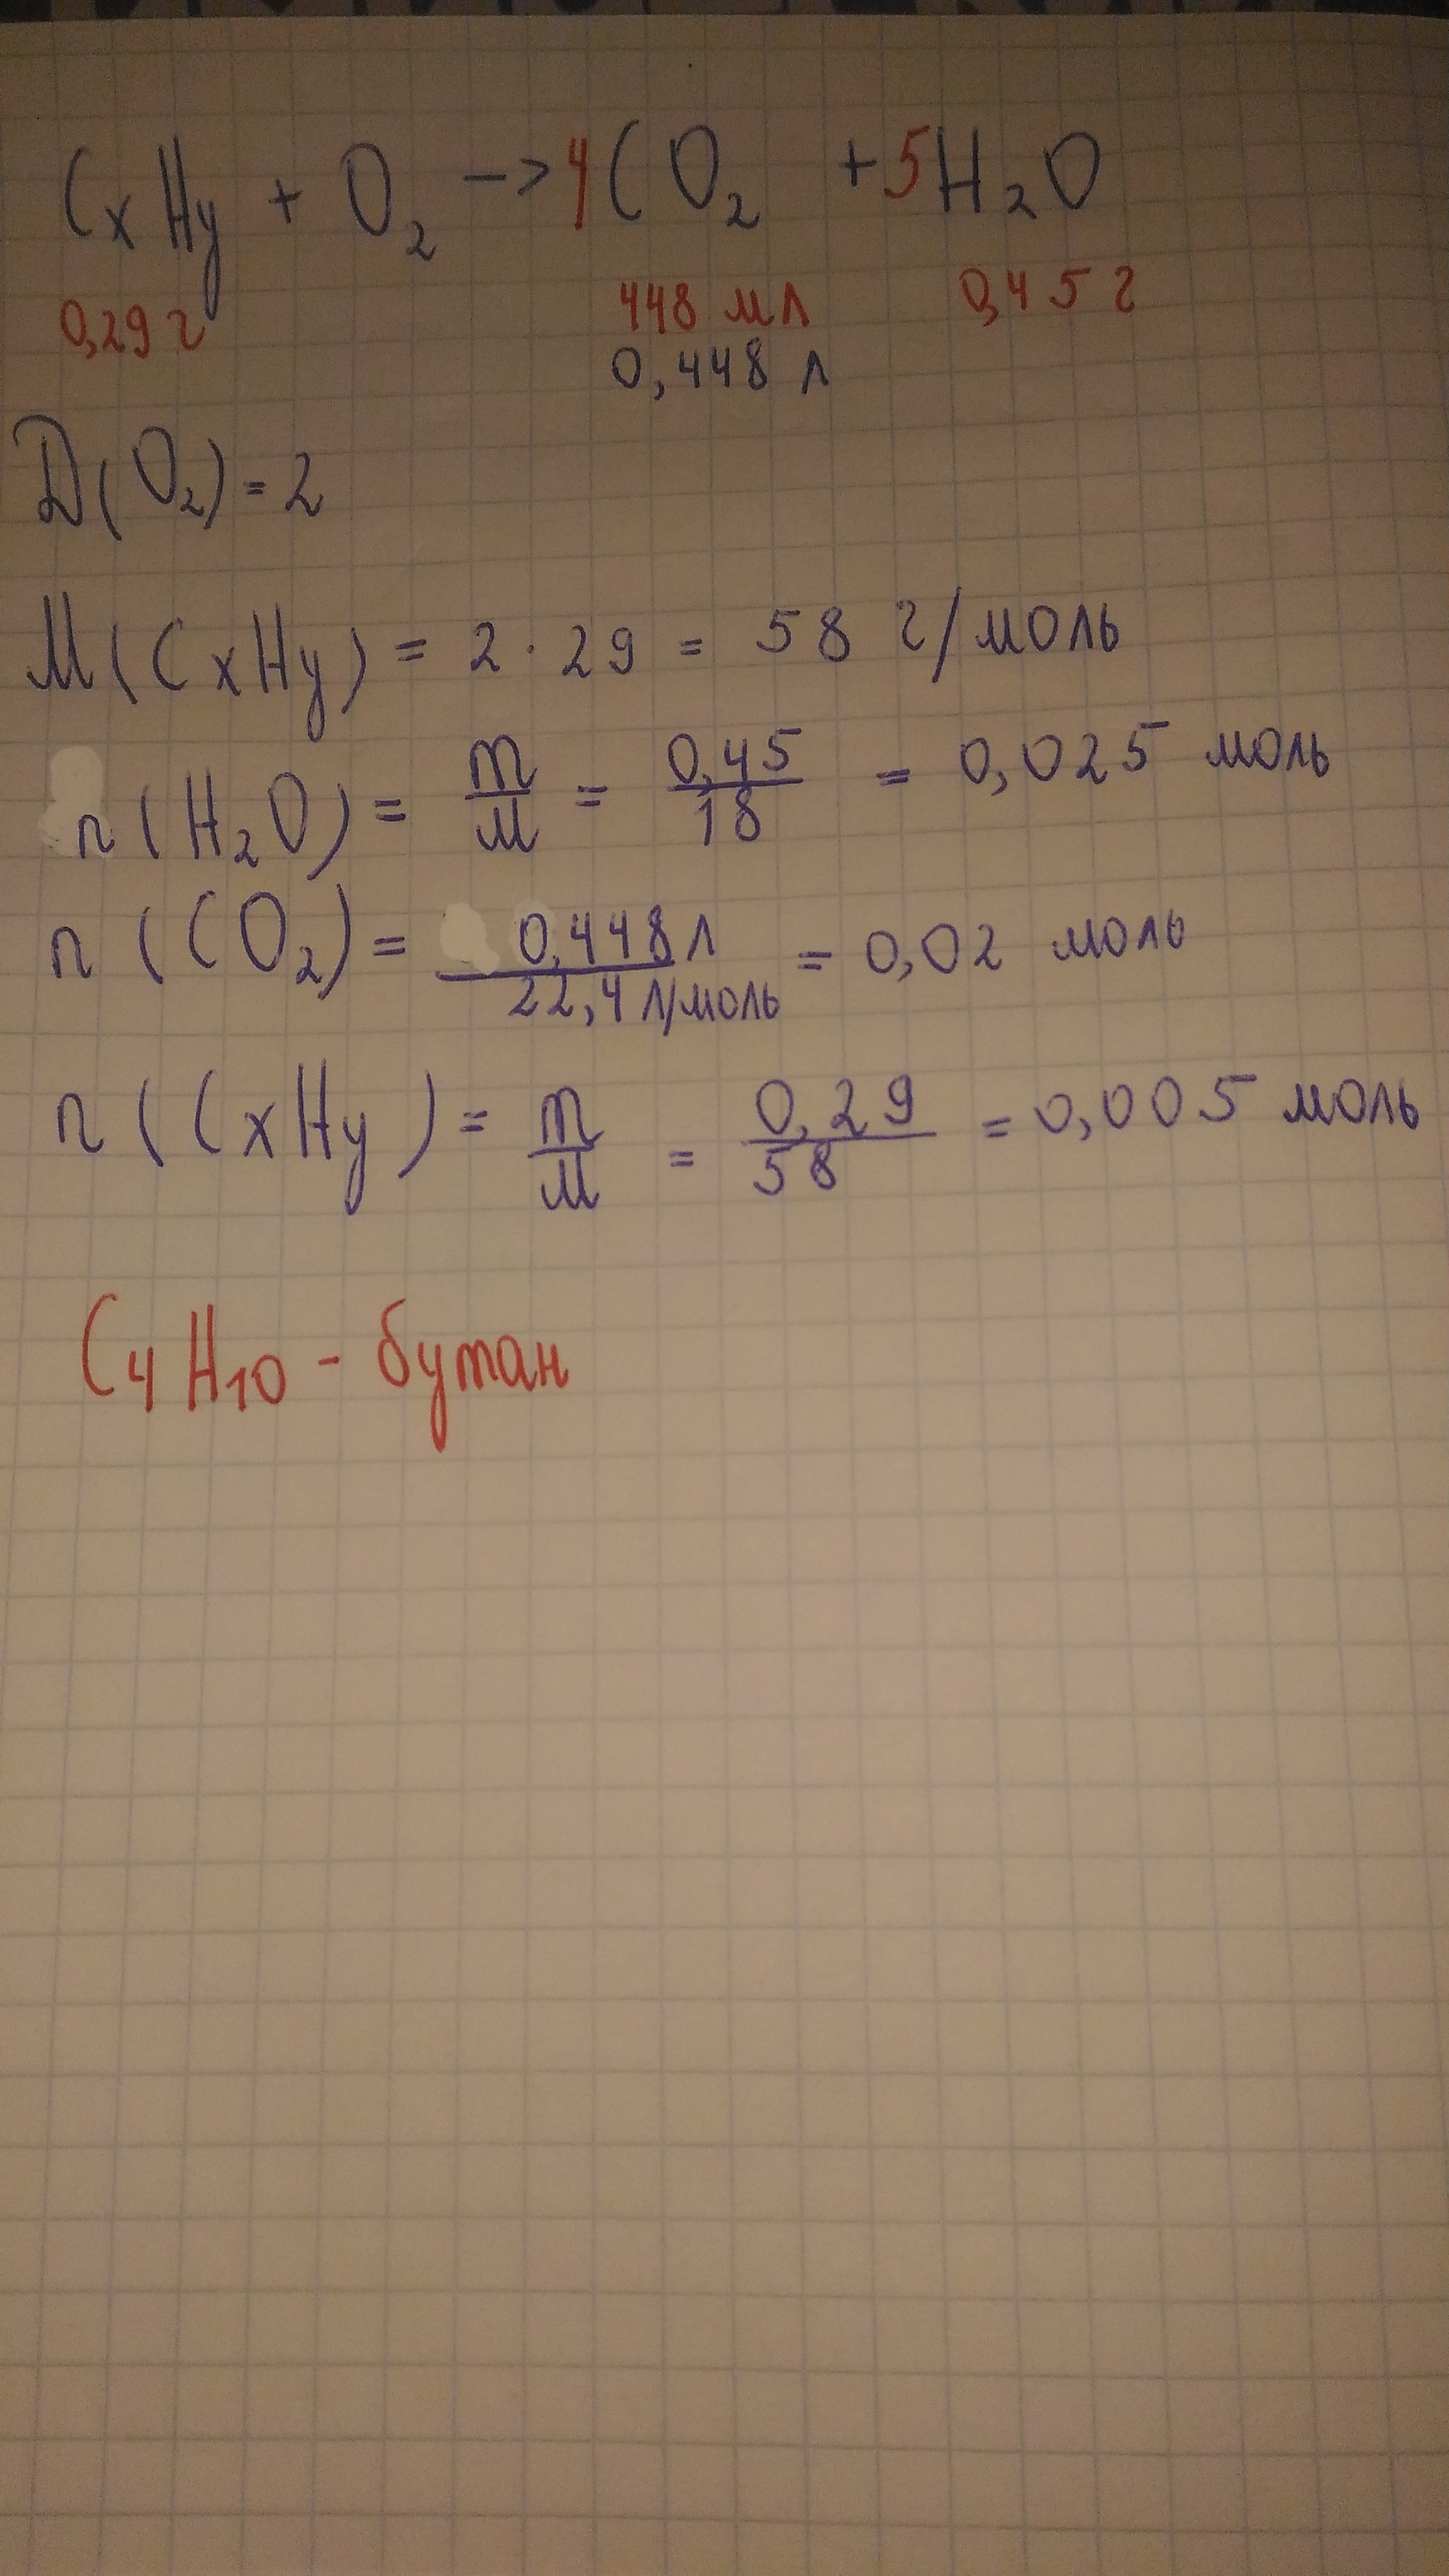 CxHy + O2 -> 4CO2 + 5H2O
0,29 г 448 мл 0,45 г
0,448 л
D(O2) = 2
M(CxHy) = 2 · 29 = 58 г/моль
n(H2O) = m/M = 0,45/18 = 0,025 моль
n(CO2) = 0,448 л/22,4 л/моль = 0,02 моль
n(CxHy) = m/M = 0,29/58 = 0,005 моль
C4H10 - бутан